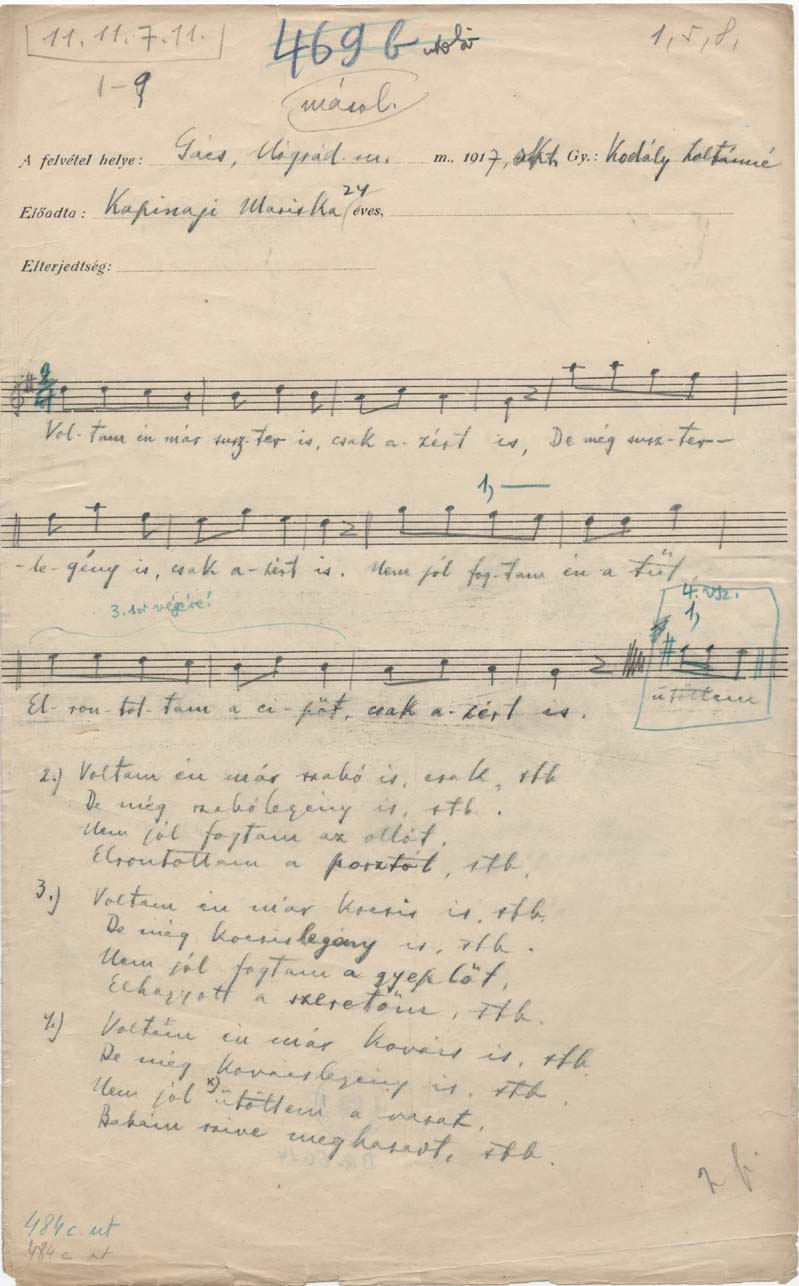 11. 11. 7. 11.
469 b utolsó
1, 5, 8,
1-9
másol.
A felvétel helye: Gács, Nógrád m. m., 1917, okt. Gy.: Kodály Zoltánné
Előadta: Kapinaji Mariska 24 éves,
Elterjedtség:
2/4
Vol-tam én már susz-ter is, csak a-zért is, De még susz-ter-
1,
-le-gény is, csak a-zért is. Nem jól fog-tam én a tűt
3. sor végére!
4. vsz.
1,
El-ron-tot-tam a ci-pőt, csak a-zért is.
ütöttem
2.) Voltam én már szabó is, csak, stb
De még szabólegény is, stb.
Nem jól fogtam az ollót,
Elrontottam a posztót, stb.
3.) Voltam én már kocsis is, stb.
De még kocsislegény is, stb.
Nem jól fogtam a gyeplőt,
Elhagyott a szeretőm, stb.
4.) Voltam én már kovács is, stb.
De még kovácslegény is, stb.
Nem jól x) ütöttem a vasat,
Babám szive meghasadt, stb.
484 c. ut
484 c ut